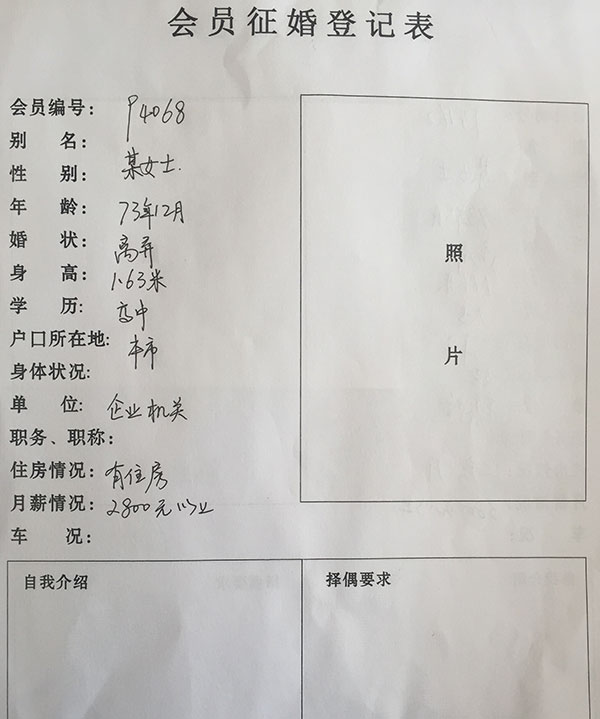 会员征婚登记表
会员编号: P4068
别 名:
性 别: 某女士.
年 龄: 73年12月
婚 状: 离异
身 高: 1.63米
学 历: 高中
户口所在地: 本市
身体状况:
单 位: 企业机关
职务、职称:
住房情况: 有住房
月薪情况: 2800元以上
车 况:
照
片
自我介绍
择偶要求